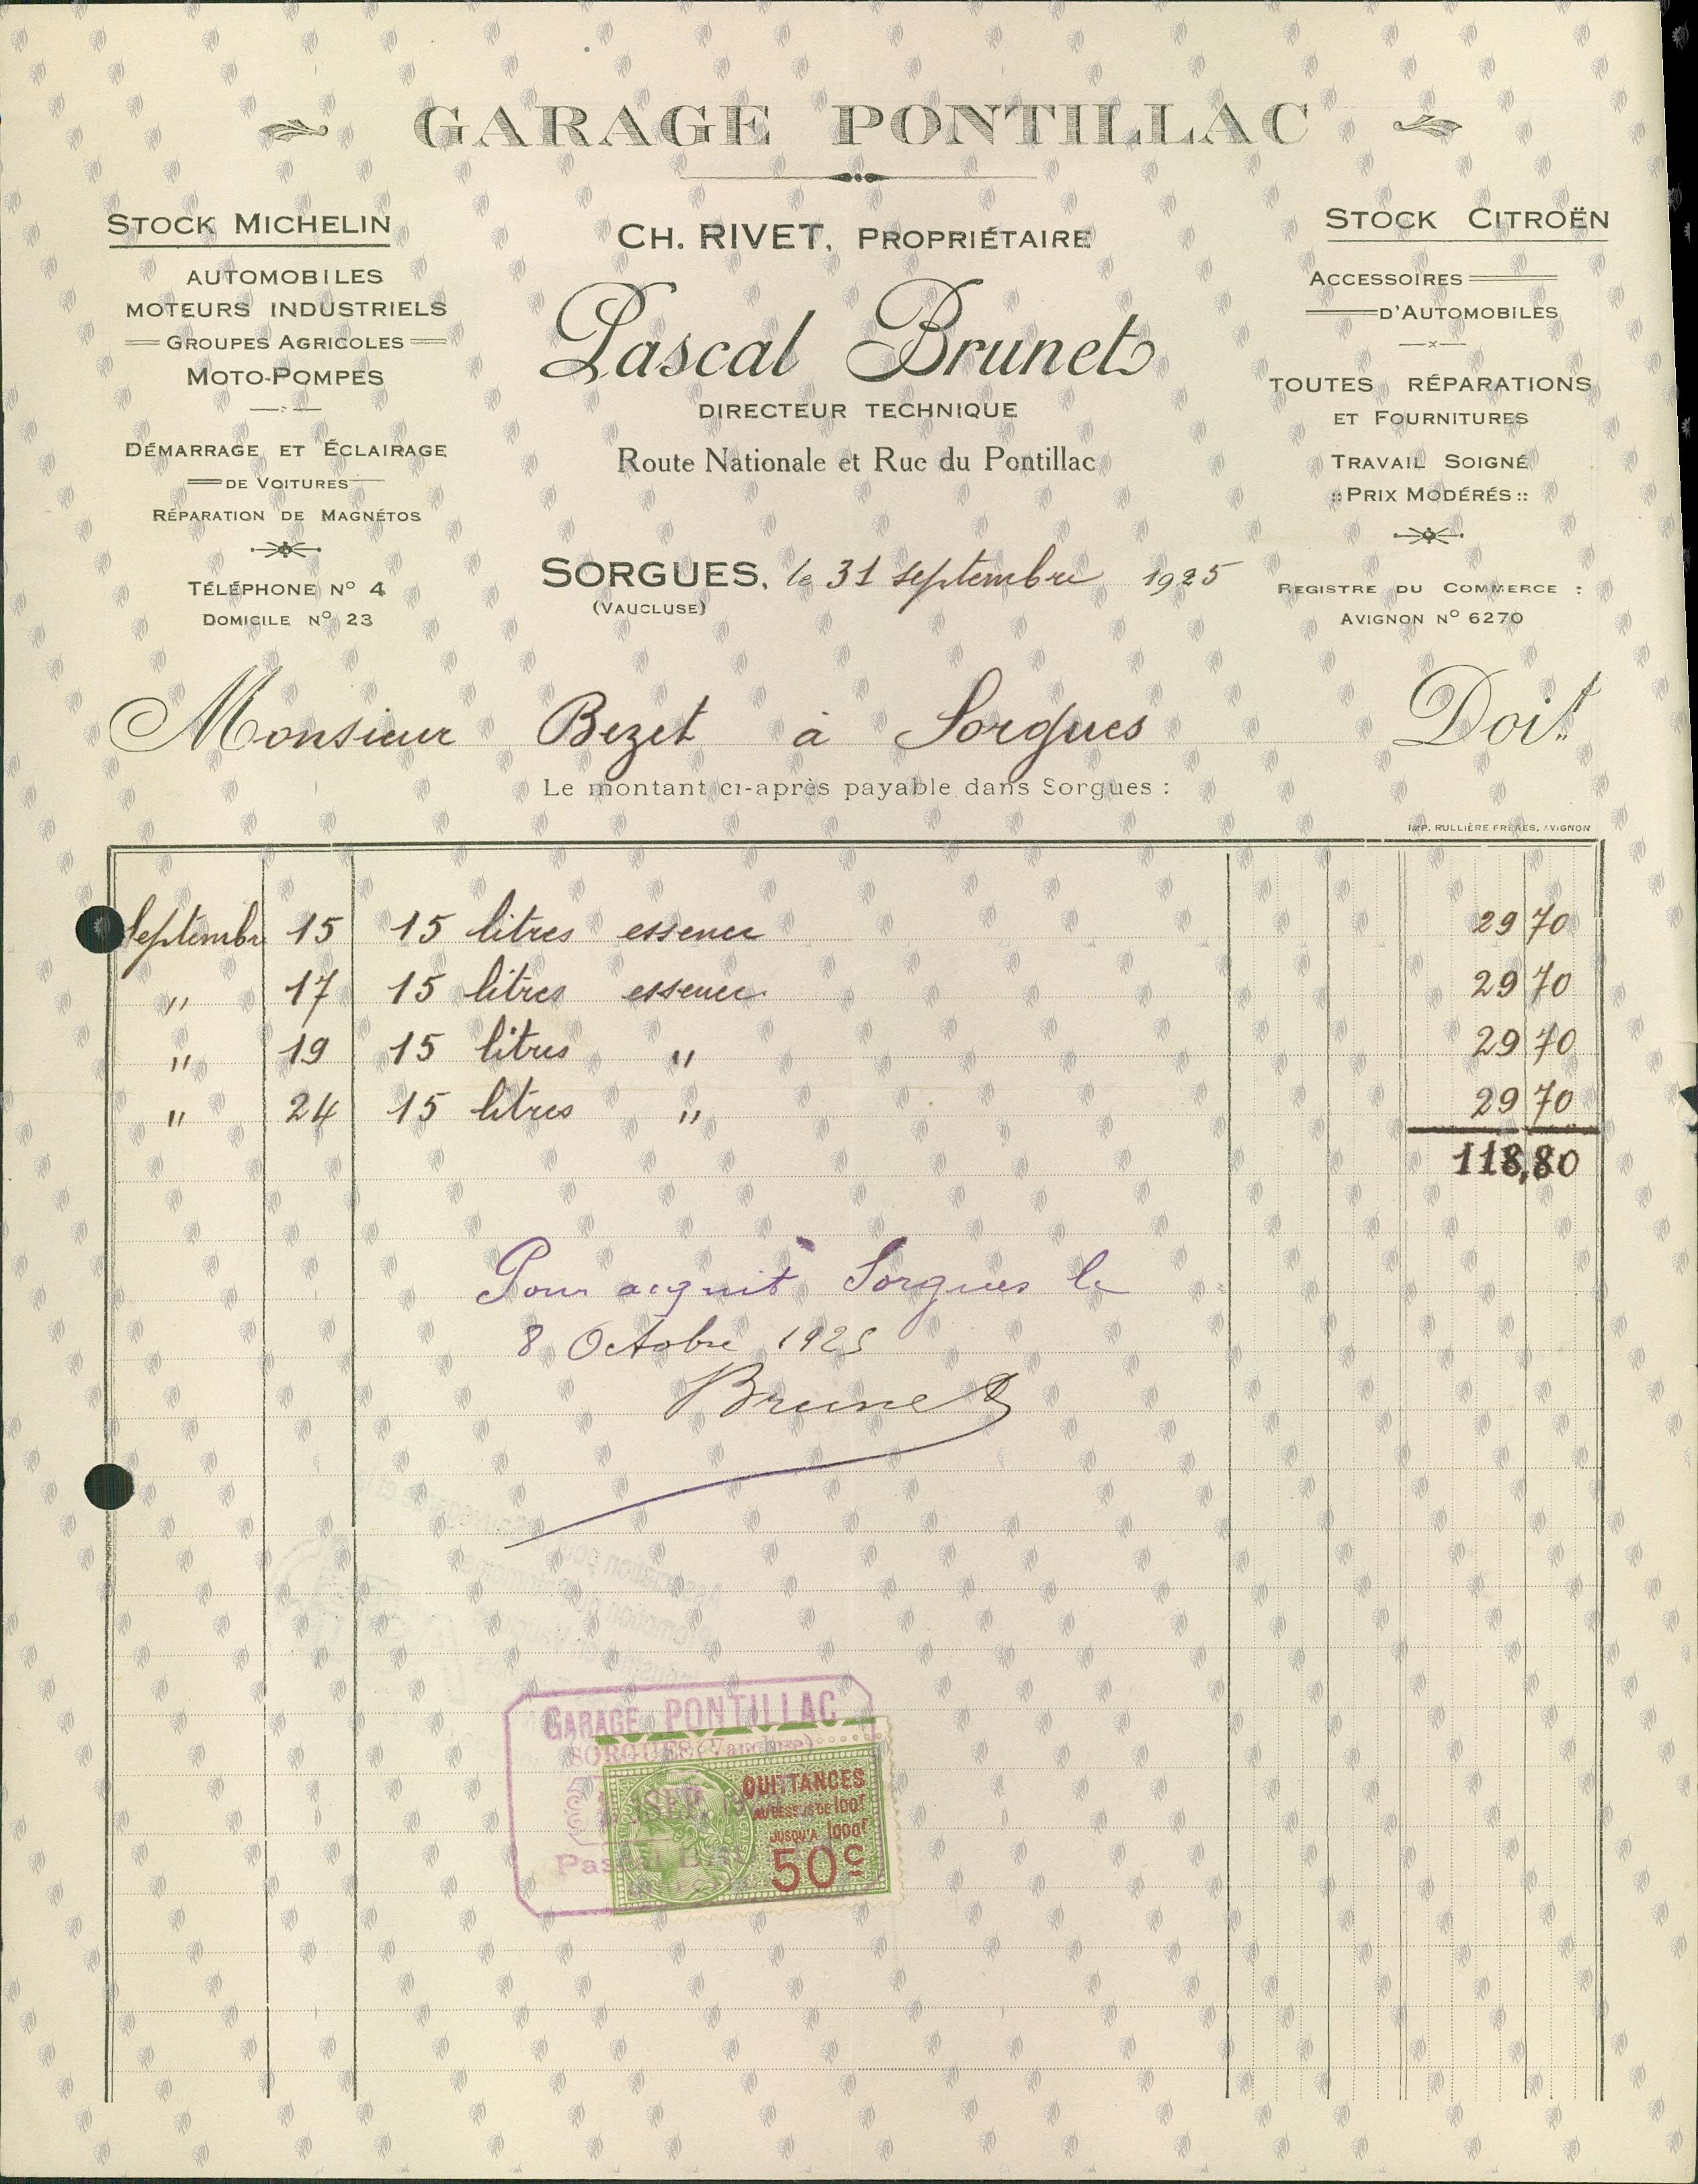 GARAGE PONTILLAC
STOCK MICHELIN
AUTOMOBILES
MOTEURS INDUSTRIELS
GROUPES AGRICOLES
MOTO-POMPES
DÉMARRAGE ET ÉCLAIRAGE
DE VOITURES
RÉPARATION DE MAGNÉTOS
TÉLÉPHONE No 4
DOMICILE No 23
CH. RIVET, PROPRIÉTAIRE
Pascal Brunet
DIRECTEUR TECHNIQUE
Route Nationale et Rue du Pontillac
SORGUES, le 31 septembre 1925
(VAUCLUSE)
STOCK CITROËN
ACCESSOIRES
D'AUTOMOBILES
TOUTES RÉPARATIONS
ET FOURNITURES
TRAVAIL SOIGNÉ
:: PRIX MODÉRÉS ::
REGISTRE DU COMMERCE :
AVIGNON No 6270
Monsieur Bezet à Sorgues Doit
Le montant ci-après payable dans Sorgues :
IMP. RULLIÈRE FRÈRES, AVIGNON
Septembre 15 15 litres essence 29 70
" 17 15 litres essence 29 70
" 19 15 litres " 29 70
" 24 15 litres " 29 70
118,80
Pour acquit Sorgues le
8 Octobre 1925
Brunet
GARAGE PONTILLAC
SORGUES (Vaucluse)
SEP.
Pascal
QUITTANCES
AU DESSUS DE 100F
JUSQU'A 1000F
50c